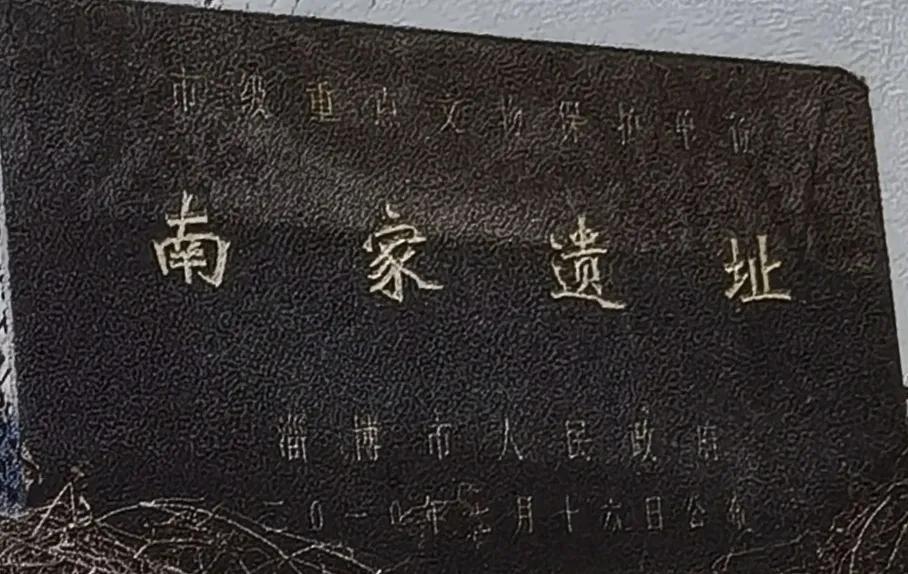 市级重点文物保护单位
南家遗址
淄博市人民政府
二〇一〇年 月十六日公布